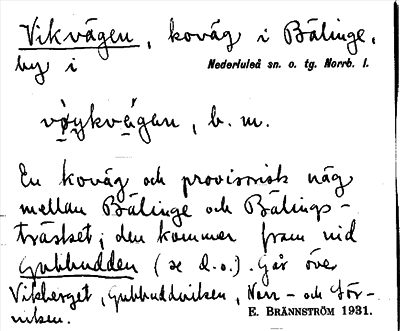 Vikvägen, koväg i Bälinge,
by i Nederluleå sn. o. tg. Norrb. l.
vø̀ykvä́gan, b. m.
En koväg och provisorisk väg
mellan Bälinge och Bälings-
träsket; den kommer fram vid
Gubbudden (se d.o.). Går över
Vikberget, Gubbuddviken, Norr- och Sör-
viken.
E. BRÄNNSTRÖM 1931.